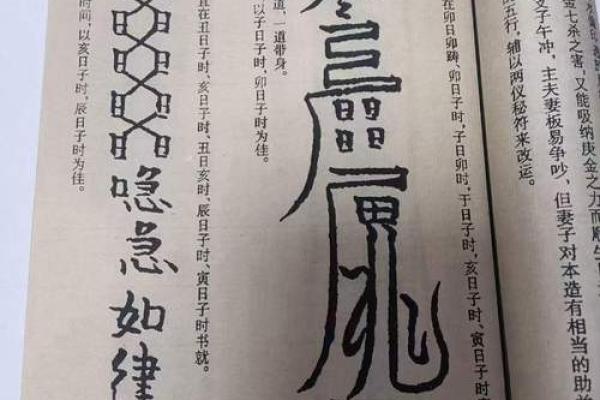 金七杀之害，又能吸纳庚金之力而顺生
支子午冲，主夫妻板易争吵，但妻子对本造有相当的助益
五行，辅以两仪秘符来改运。
在卯日卯畴、卯日子时，子日卯时，于日子时，亥日子时、寅日子时
道，一道带身。
以子日子时，卯日子时为佳。
在丑日子时、亥日子时、丑日亥时、辰日子时、寅日子时书就。
喼急如律
时间，以亥日子时，辰日子时为佳。